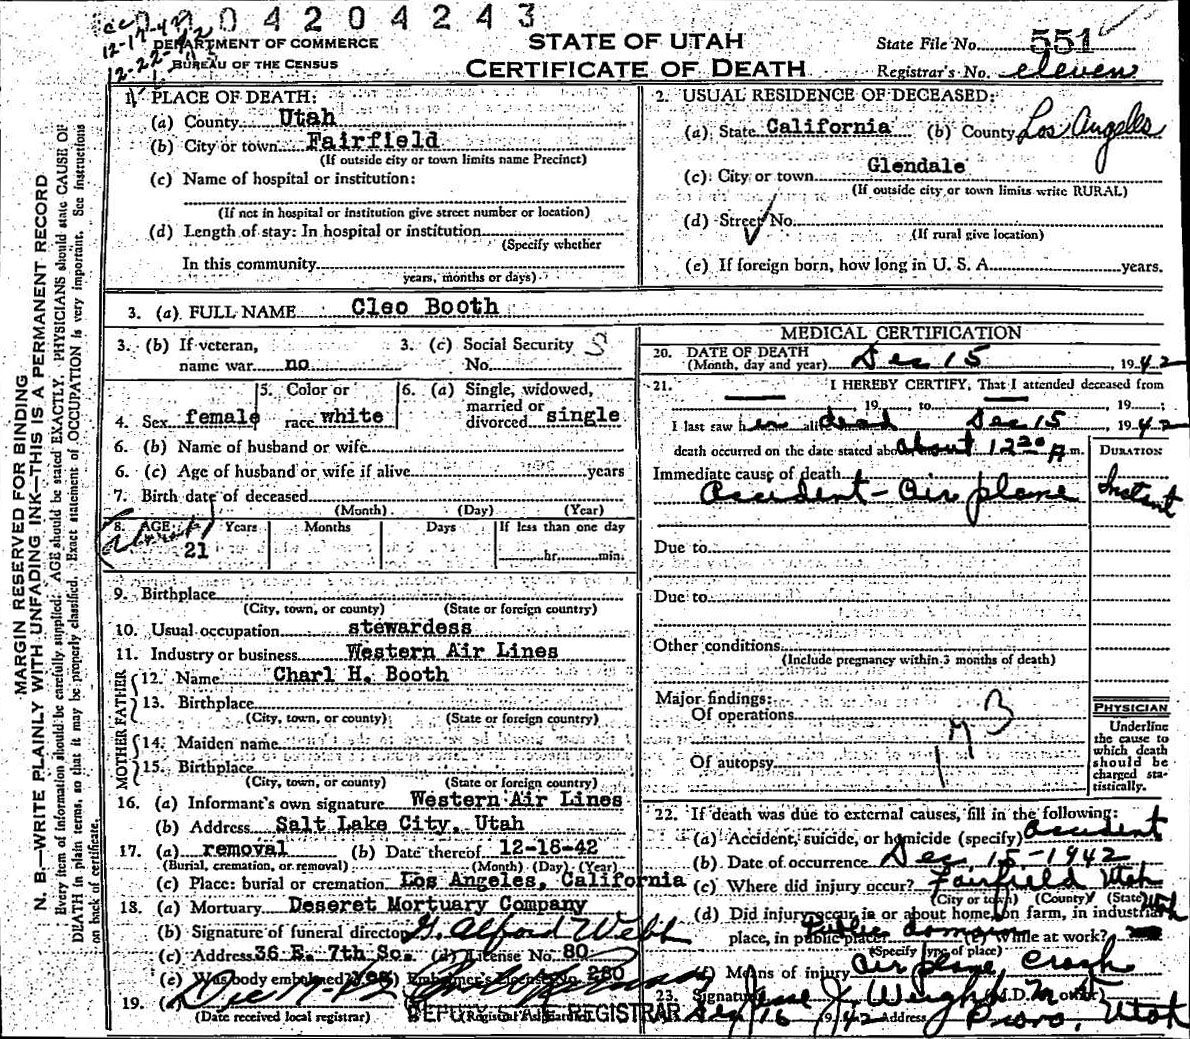 04204243
12-17-42
12-22-42
DEPARTMENT OF COMMERCE
BUREAU OF THE CENSUS
STATE OF UTAH
CERTIFICATE OF DEATH
State File No. 551
Registrar's No. eleven
MARGIN RESERVED FOR BINDING
N. B.—WRITE PLAINLY WITH UNFADING INK—THIS IS A PERMANENT RECORD
Every item of information should be carefully supplied. AGE should be stated EXACTLY. PHYSICIANS should state CAUSE OF
DEATH in plain terms, so that it may be properly classified. Exact statement of OCCUPATION is very important. See instructions
on back of certificate.
1. PLACE OF DEATH:
(a) County Utah
(b) City or town Fairfield
(If outside city or town limits name Precinct)
(c) Name of hospital or institution:
(If not in hospital or institution give street number or location)
(d) Length of stay: In hospital or institution
(Specify whether
In this community
years, months or days)
2. USUAL RESIDENCE OF DECEASED:
(a) State California (b) County Los Angeles
(c) City or town Glendale
(If outside city or town limits write RURAL)
(d) Street No.
(If rural give location)
(e) If foreign born, how long in U. S. A. years.
3. (a) FULL NAME Cleo Booth
3. (b) If veteran,
name war no
3. (c) Social Security
No.
S
4. Sex female
5. Color or
race white
6. (a) Single, widowed,
married or
divorced single
6. (b) Name of husband or wife
6. (c) Age of husband or wife if alive years
7. Birth date of deceased
(Month) (Day) (Year)
8. AGE: Years Months Days If less than one day
about
21 hr. min.
9. Birthplace
(City, town, or county) (State or foreign country)
10. Usual occupation stewardess
11. Industry or business Western Air Lines
FATHER
12. Name Charl H. Booth
13. Birthplace
(City, town, or county) (State or foreign country)
MOTHER
14. Maiden name
15. Birthplace
(City, town, or county) (State or foreign country)
16. (a) Informant's own signature Western Air Lines
(b) Address Salt Lake City, Utah
17. (a) removal (b) Date thereof 12-18-42
(Burial, cremation, or removal) (Month) (Day) (Year)
(c) Place: burial or cremation Los Angeles, California
18. (a) Mortuary Deseret Mortuary Company
(b) Signature of funeral director G. Alford Webb
(c) Address 36 E. 7th So. (d) License No. 80
(e) Was body embalmed? Yes Embalmer's License No. 280
19. (a) Dec 17-42
(Date received local registrar) (Registrar's signature)
DEPUTY STATE REGISTRAR
MEDICAL CERTIFICATION
20. DATE OF DEATH
(Month, day and year) Dec 15, 1942
21. I HEREBY CERTIFY, That I attended deceased from
— 19 , to — , 19 ;
I last saw her alive dead Dec 15, 1942
death occurred on the date stated above about 12 30 A m.
DURATION
Immediate cause of death
Accident - Air plane
Instant
Due to
Due to
Other conditions
(Include pregnancy within 3 months of death)
Major findings:
Of operations
Of autopsy
PHYSICIAN
Underline
the cause to
which death
should be
charged sta-
tistically.
22. If death was due to external causes, fill in the following:
(a) Accident, suicide, or homicide (specify) accident
(b) Date of occurrence Dec 15-1942
(c) Where did injury occur? Fairfield Utah
(City or town) (County) (State)
Utah
(d) Did injury occur in or about home, on farm, in industrial
place, in public place? Public domain (e) While at work?
(Specify type of place)
(f) Means of injury Air plane crash
23. Signature Jesse J. Weight M.D. (M.D. or other)
Dec 16 1942 Address Provo, Utah